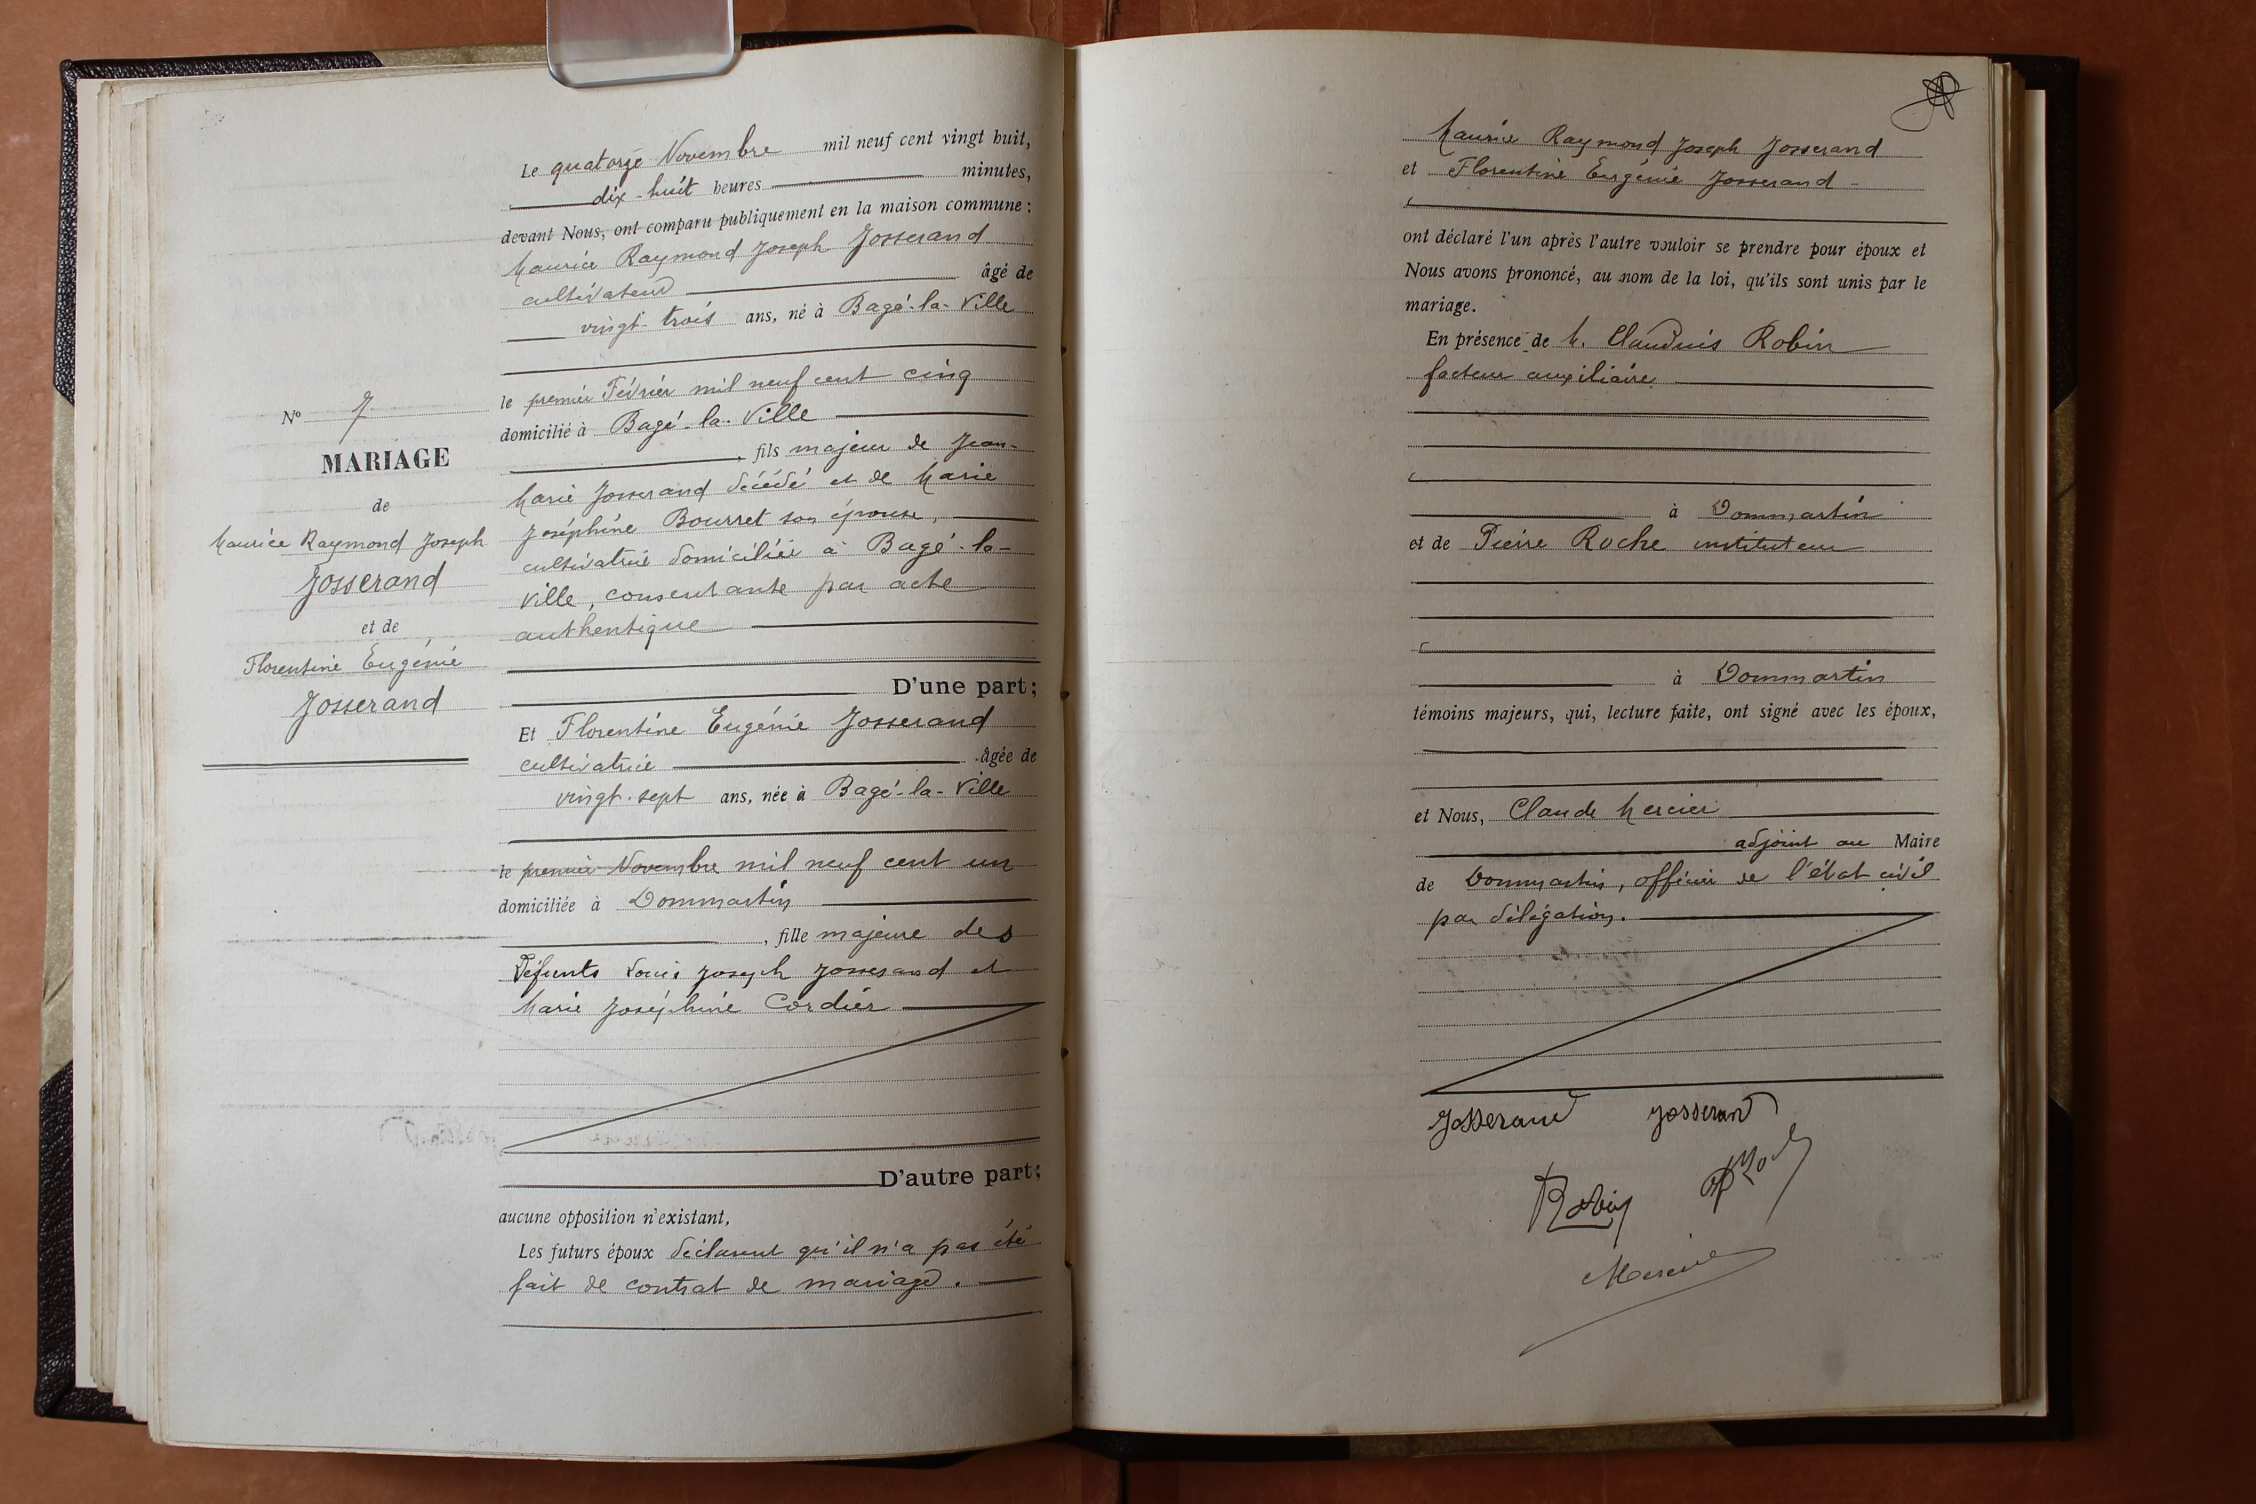 Le quatorze Novembre mil neuf cent vingt huit,
dix-huit heures minutes,
devant Nous, ont comparu publiquement en la maison commune :
Maurice Raymond Joseph Josserand
cultivateur âgé de
vingt-trois ans, né à Bagé-la-Ville
le premier Février mil neuf cent cinq
domicilié à Bagé-la-Ville
, fils majeur de Jean-
Marie Josserand décédé et de Marie
Joséphine Bourret son épouse,
cultivatrice domiciliée à Bagé-la-
Ville, consentante par acte
authentique
D'une part;
Et Florentine Eugénie Josserand
cultivatrice âgée de
vingt-sept ans, née à Bagé-la-Ville
le premier Novembre mil neuf cent un
domiciliée à Dommartin
, fille majeure des
Défunts Louis Joseph Josserand et
Marie Joséphine Cordier
D'autre part;
aucune opposition n'existant,
Les futurs époux déclarent qu'il n'a pas été
fait de contrat de mariage.
Nº 7
MARIAGE
de
Maurice Raymond Joseph
Josserand
et de
Florentine Eugénie
Josserand
Maurice Raymond Joseph Josserand
et Florentine Eugénie Josserand
ont déclaré l'un après l'autre vouloir se prendre pour époux et
Nous avons prononcé, au nom de la loi, qu'ils sont unis par le
mariage.
En présence de M. Claudius Robin
facteur auxiliaire
à Dommartin
et de Pierre Roche instituteur
à Dommartin
témoins majeurs, qui, lecture faite, ont signé avec les époux,
et Nous, Claude Mercier
adjoint au Maire
de Dommartin, officier de l'état civil
par délégation.
Josserand Josserand
Robin
Mercier